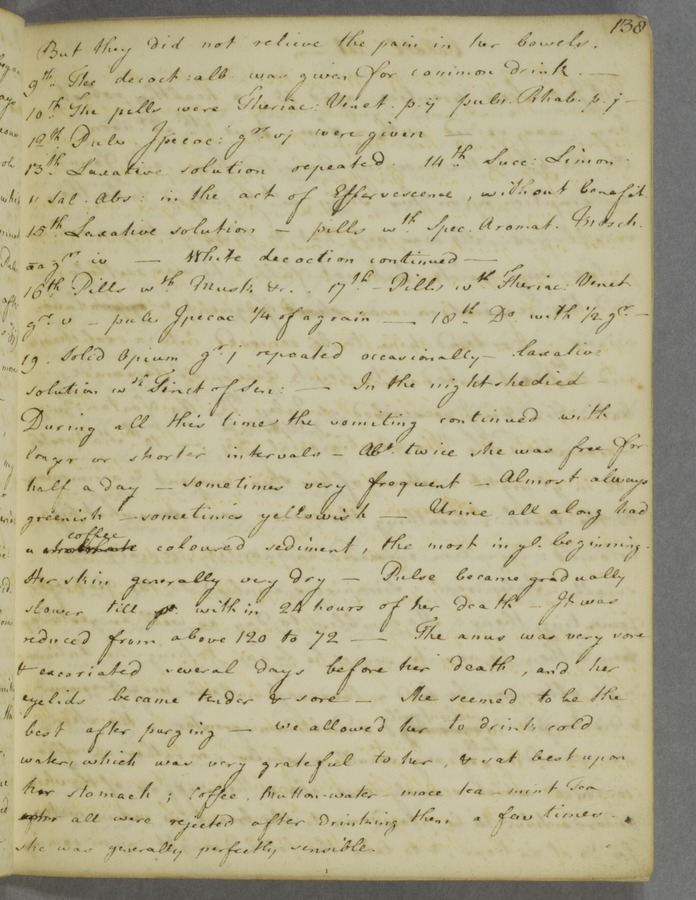 138
But they did not relieve the pain in her bowels.
9th. The decoct: alb. was given for common drink. —
10th The pills were Theriac: Venet. p. ij pulv. Rhab. p. j —
12th Pulv Ipecac: gr. vj were given —
13th Laxative solution repeated. 14th Succ: Limon:
Sal. Abs: in the act of Effervescence, without benefit.
15th Laxative solution — pills wth Spec. Aromat. Mosch.
aa gr iv — White decoction continued —
16th Pills wth Musk &c. 17th - Pills wth Theriac: Venet
gr. v — pulv Ipecac 1/4 of a grain — 18th Do with 1/2 gr. —
19. Solid Opium gr. j repeated occasionally — laxative
solution wth Tinct of Sen: — In the night she died —
During all this time the vomiting continued with
longer or shorter intervals — Abt. twice she was free for
half a day — sometimes very frequent — Almost always
greenish — sometimes yellowish — Urine all along had
a coffee coloured sediment, the most in ye. beginning.
Her skin generally very dry — Pulse became gradually
slower till within 24 hours of her death — It was
reduced from above 120 to 72 — The anus was very sore
& excoriated several days before her death, and her
eyelids became tender & sore — She seemed to be the
best after purging — we allowed her to drink cold
water, which was very grateful to her, & sat best upon
her stomach; Coffee, Mutton-water - mace tea - mint Tea
all were rejected after drinking them a few times.
She was generally perfectly sensible.